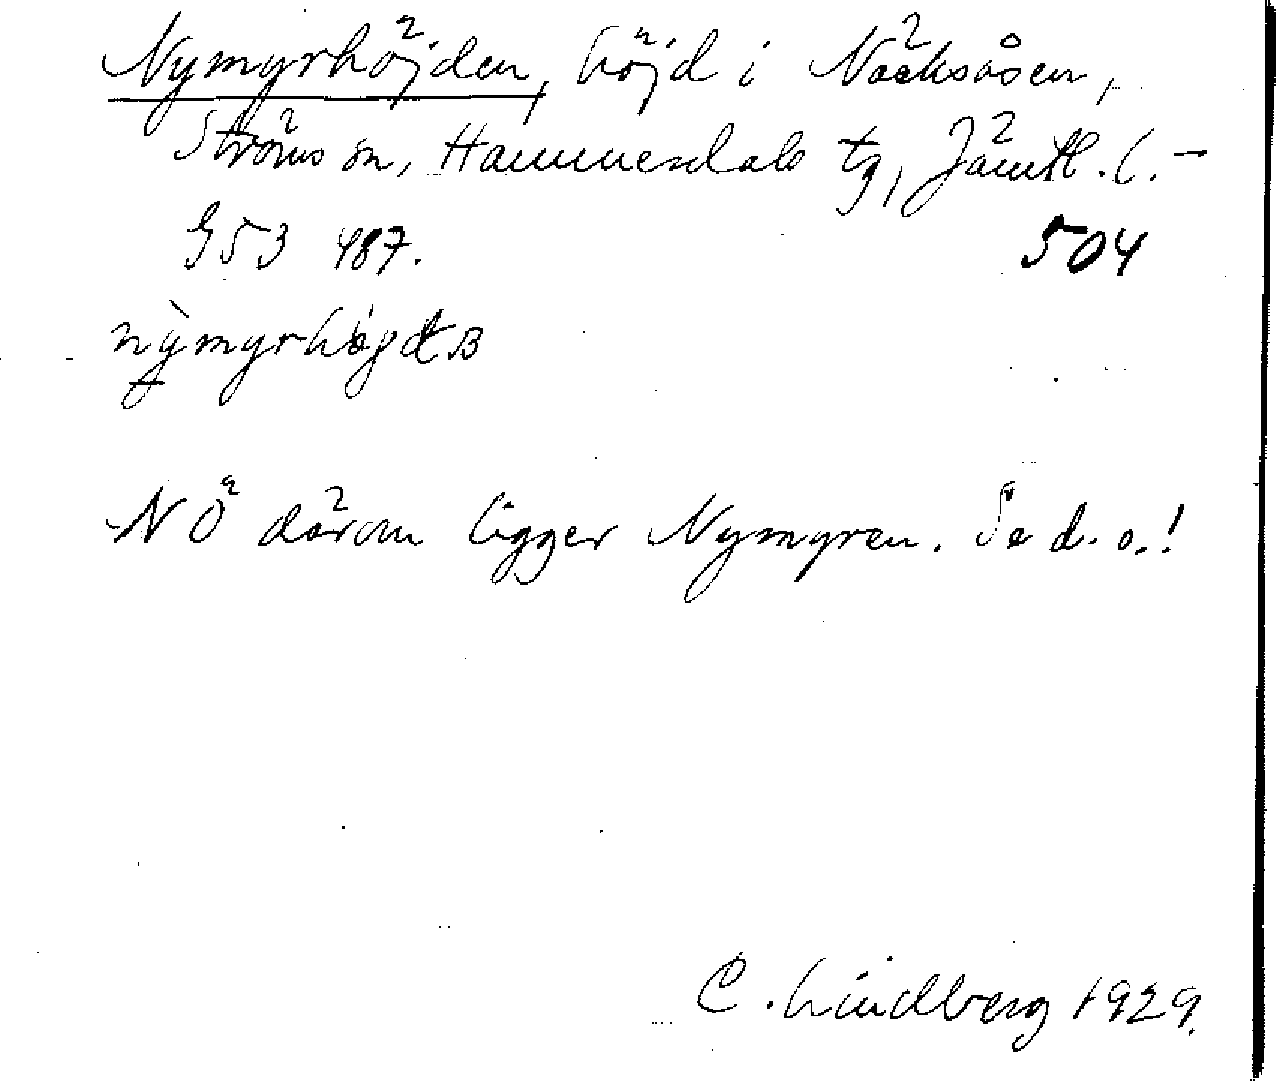 Nymyrhöjden, höjd i Näcksåsen,
Ströms sn, Hammerdals tg, Jämtl. l. –
G53 487. 504
nỳmyrhøgdʙ
NÖ därom ligger Nymyren. Se d. o.!
C. Lindberg 1929.